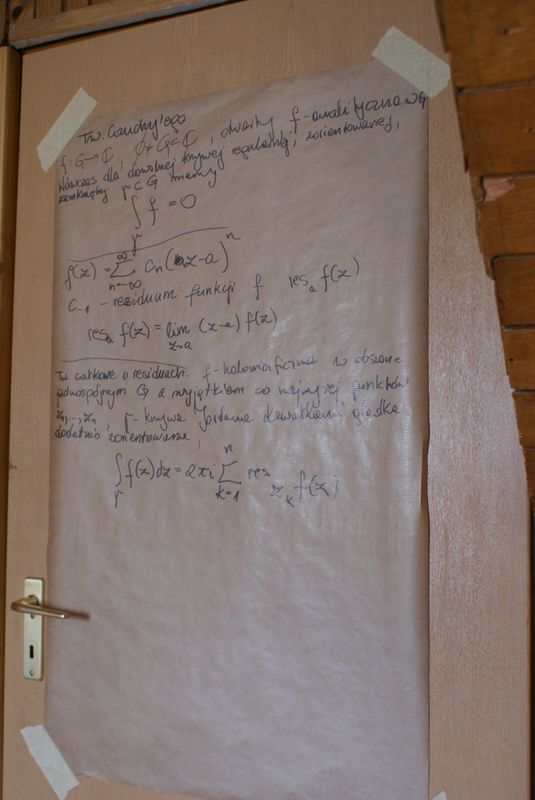 Tw. Cauchy'ego
f: G→ℂ ∅≠G⊂ℂ, otwarty f-analityczna w G
Wówczas dla dowolnej krzywej regularnej, zorientowanej,
zamkniętej γ⊂G mamy
∫_γ f = 0
f(z) = ∑_{n=-∞}^{∞} c_n (z-a)^n
c_{-1} - residuum funkcji f res_a f(z)
res_a f(z) = lim_{z→a} (z-a) f(z)
Tw. całkowe o residuach. f-holomorficzna w obszarze
jednospójnym G z wyjątkiem co najwyżej punktów
z_1, ..., z_n, γ- krzywa Jordana kawałkami gładka
dodatnio zorientowana,
∫_γ f(z)dz = 2πi ∑_{k=1}^{n} res_{z_k} f(z)